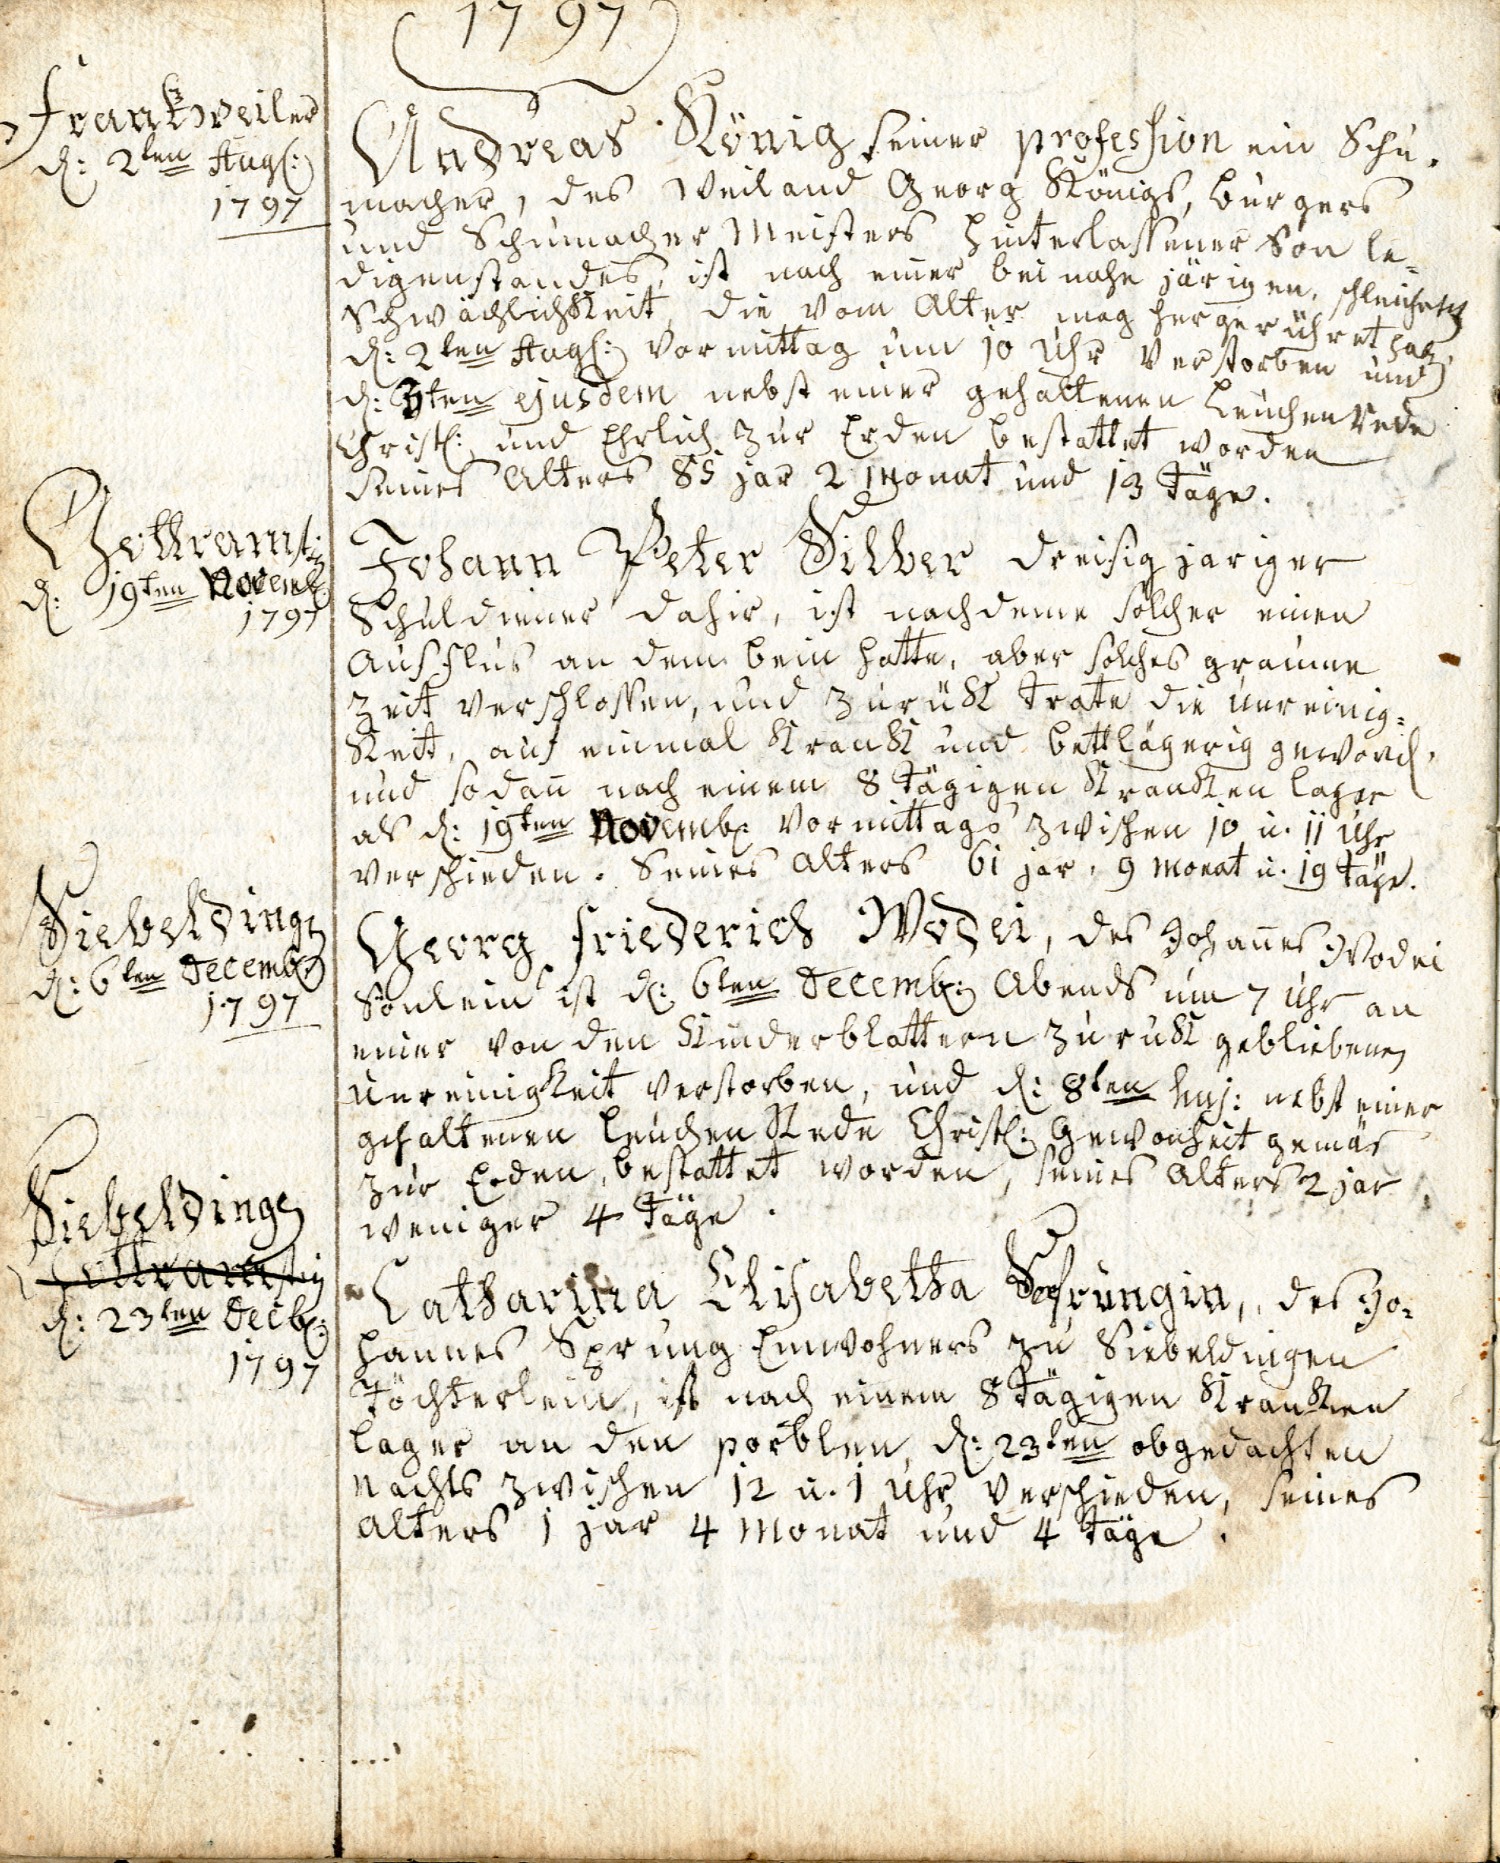 1797
Frankweiler
d: 2ten Aug:
1797
Andreas König seiner profession ein Schu-
macher, des Weiland Georg Königs, burgers
und Schumacher Meisters hinterlassener Son le-
digenstandes, ist nach einer bei nahe järigen, schleichenden
Schwächlichkeit, die vom Alter mag hergerühret hab,
d: 2ten Aug: Vormittag um 10 Uhr Verstorben und
d: 3ten ejusdem nebst einer gehaltenen Leuchen Rede
Christl: und Ehrlich zur Erden bestattet worden
seines Alters 85 jar 2 Monat und 13 Täge.
Gottramst:
d: 19ten Novemb:
1797
Johann Peter Silber dreisigjäriger
Schuldiener dahir, ist nachdeme solcher einen
Ausflus an dem bein hatte, aber solches graume
Zeit verschlossen, und zurükt trate die unreinig-
keit, auf einmal krank und bettlägerig geword,
und sodan̄ nach einem 8 Tägigen Kranken lager
als d: 19ten Novemb: Vormittags zwischen 10 u. 11 Uhr
verschieden. Seines Alters 61 jar, 9 Monat u. 19 Täge.
Siebelding
d: 6ten Decemb:
1797
Georg Friederich Wodei, des Johan̄es Wodei
Sönlein ist d: 6ten Decemb: Abends um 7 Uhr an
einer von den Kinderblattern zurukt gebliebenen
Unreinigkeit verstorben, und d: 8ten huj: nebst einer
gehaltenen Leuchen Rede Christl: Gewonheit gemäs
zur Erden, bestattet worden, seines Alters 2 jar
weniger 4 Täge.
Siebelding
Gottramst
d: 23ten Decb:
1797
Catharina Elisabetha Sprungin, des Jo-
hannes Sprung Einwohners zu Siebeldingen
Töchterlein, ist nach einem 8 Tägigen Kranken
lager an den porblen, d: 23ten obgedachten
Nachts zwischen 12 u. 1 Uhr verschieden, seines
Alters 1 jar 4 Monat und 4 Täge.